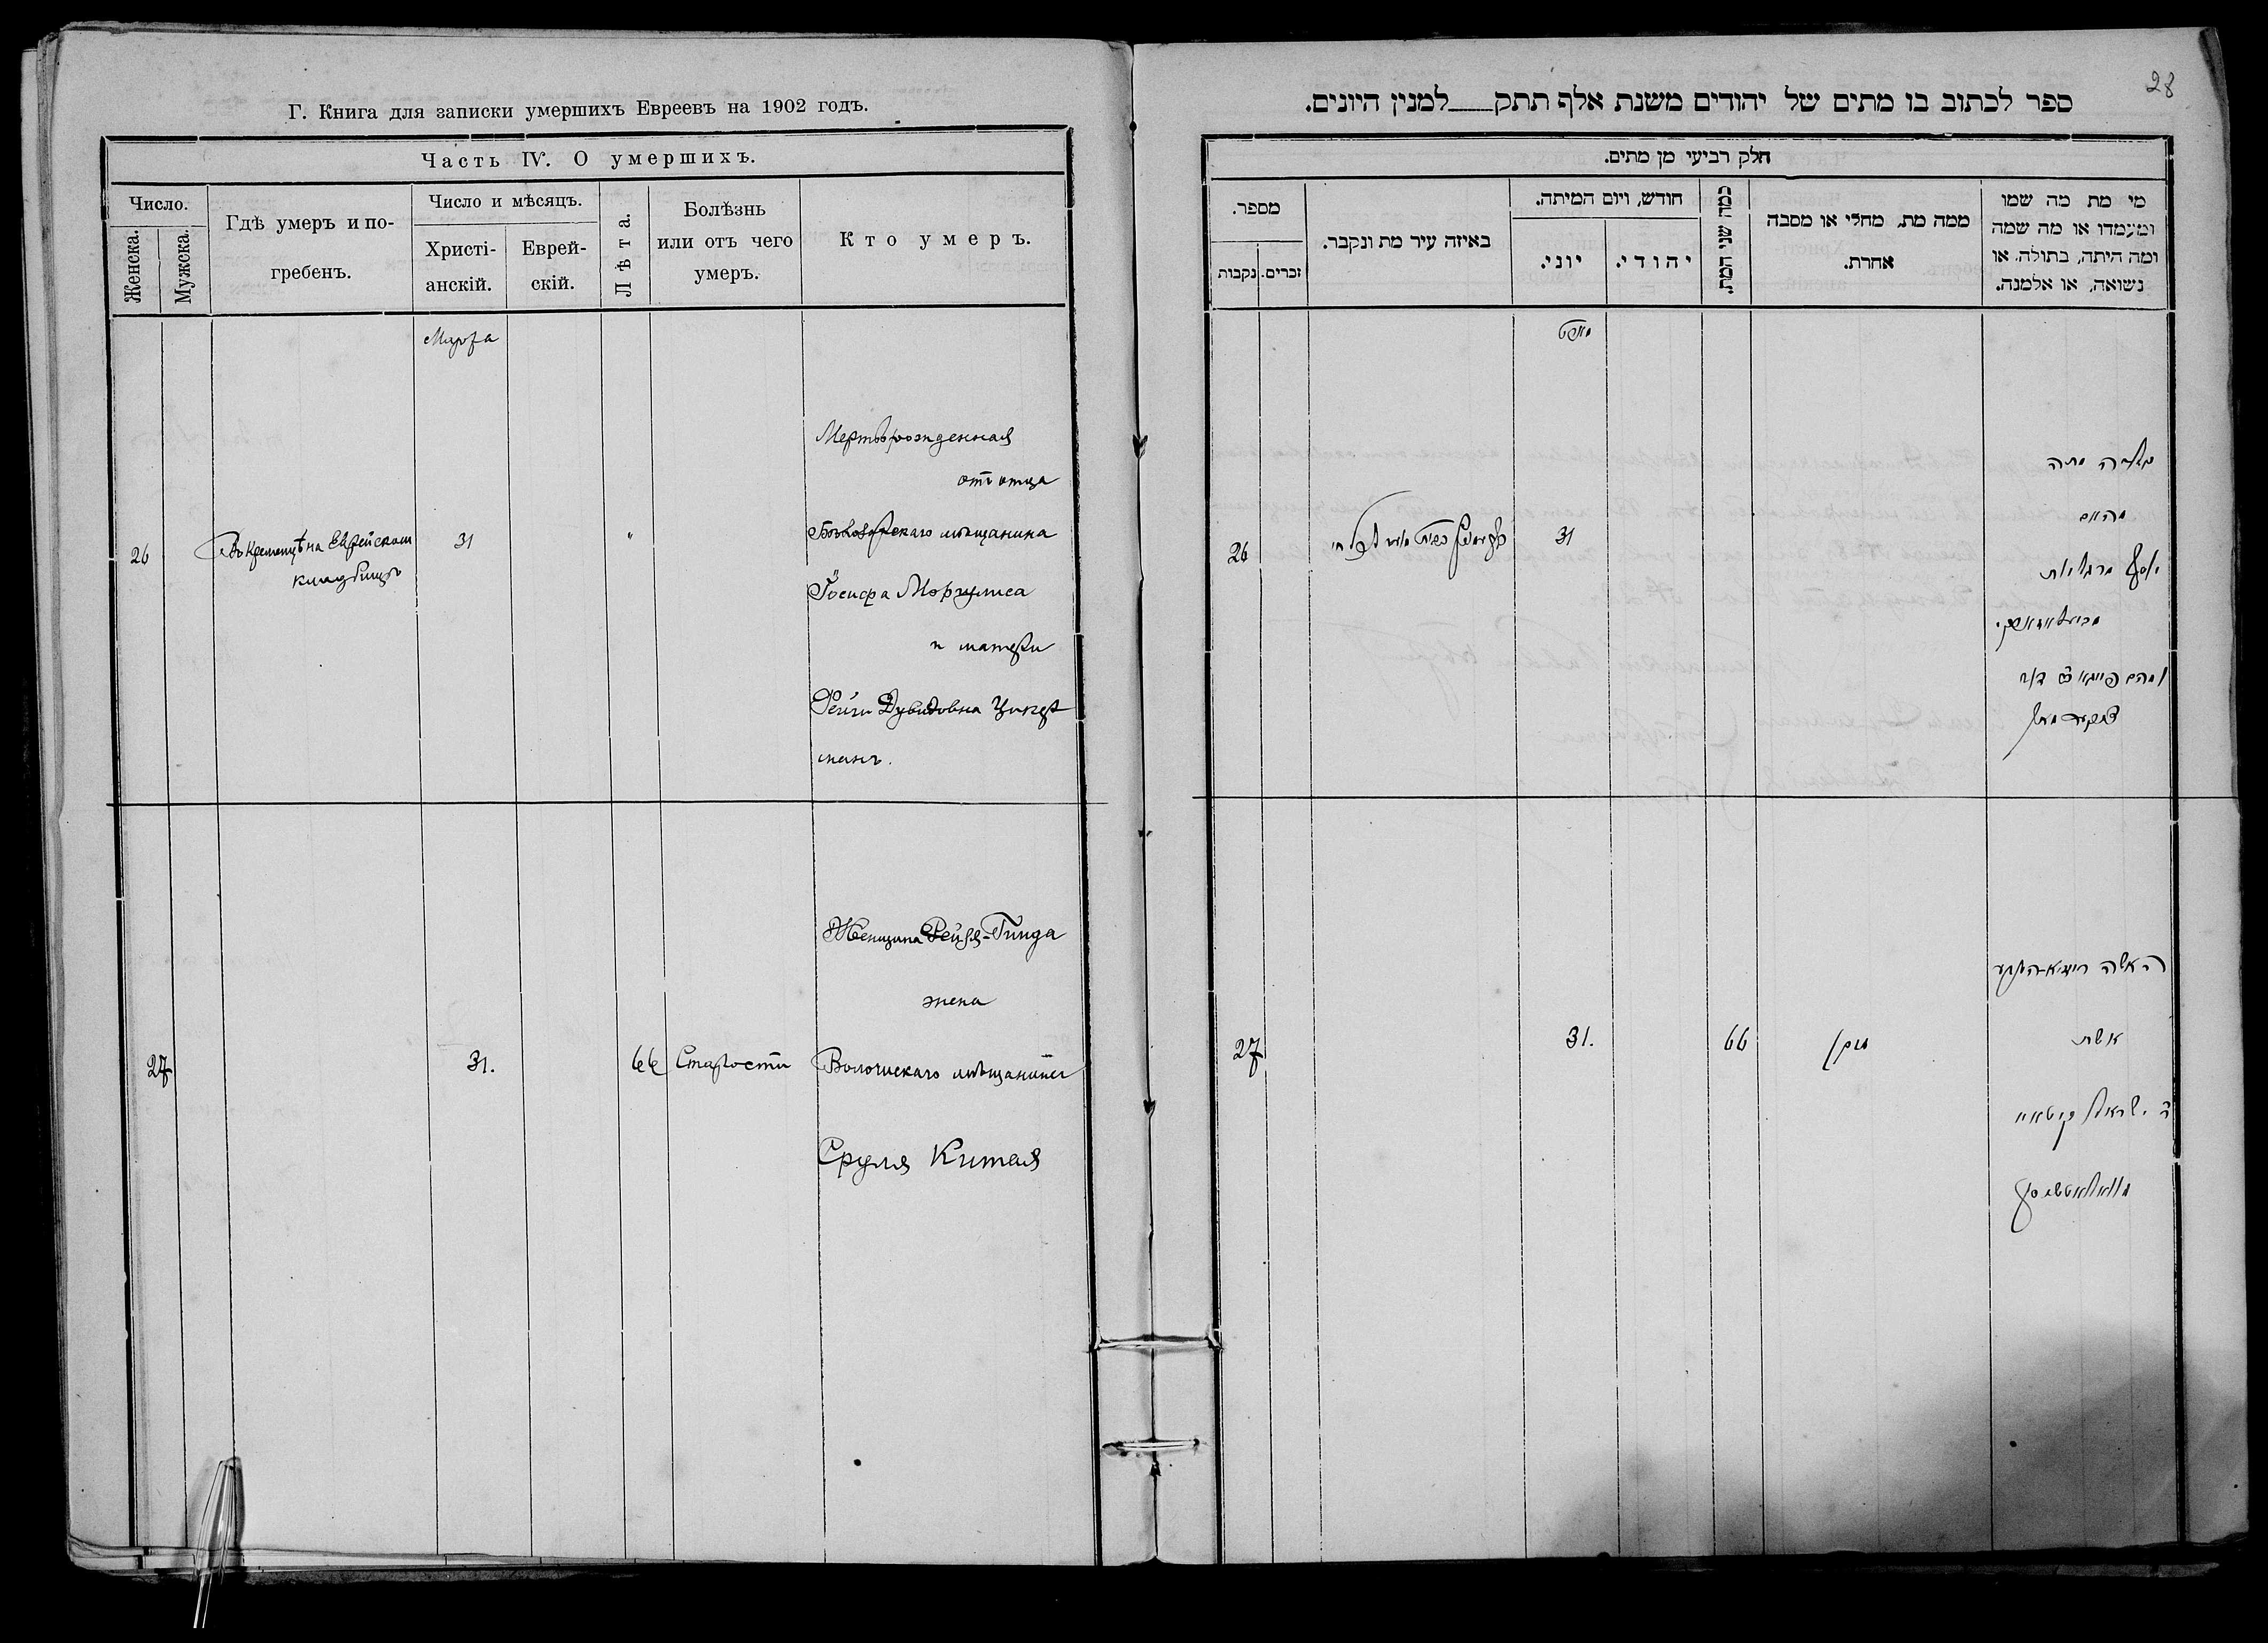 Г. Книга для записки умершихъ Евреевъ на 1902 годъ.
Часть IV. О умершихъ.
Число.
Женска.
Мужска.
Гдѣ умеръ и по-
гребенъ.
Число и мѣсяцъ.
Христі-
анскій.
Еврей-
скій.
Лѣта.
Болѣзнь
или отъ чего
умеръ.
Кто умеръ.
Марта
26
Въ Кременцѣ на Еврейском
кладбищѣ
31
"
Мертворожденная
отъ отца
мѣщанина
Іосифа Моргулиса
и матери
Фейги Дувидовна Цукер
манъ.
27
31.
66
Старости
Женщина Рейзя-Гинда
жена
Волочискаго мѣщанина
Сруля Китая
28
ספר לכתוב בו מתים של יהודים משנת אלף תתק___למנין היונים.
חלק רביעי מן מתים.
מי מת מה שמו
ומעמדו או מה שמה
ומה היתה, בתולה, או
נשואה, או אלמנה.
ממה מת, מחלי או מסבה
אחרת.
כמה שני המת.
חודש, ויום המיתה.
יהודי.
יוני.
באיזה עיר מת ונקבר.
מספר.
זכרים.
נקבות
מארט
26
31
מהאב
יוסף מרגליות
צוקערמאן
27
31.
66
זקן
האשה רייזיא-הינדע
אשת
ר' ישראל קיטאיי